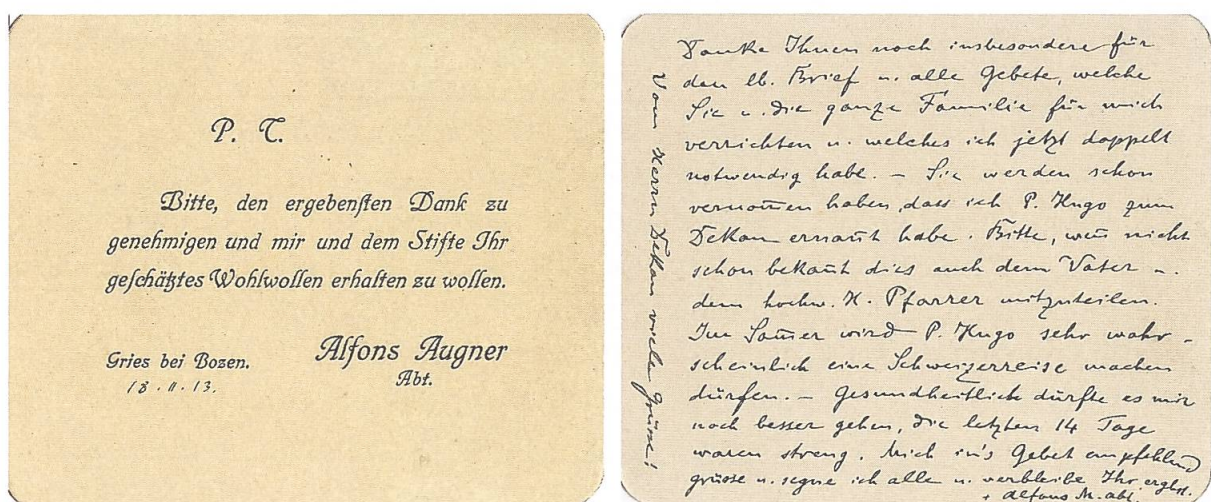 P. T.
Bitte, den ergebenſten Dank zu
genehmigen und mir und dem Stifte Ihr
geſchätztes Wohlwollen erhalten zu wollen.
Gries bei Bozen.
18.11.13.
Alfons Augner
Abt.
Danke Ihnen noch insbesondere für
den lb. Brief u. alle Gebete, welche
Sie u. die ganze Familie für mich
verrichten u. welches ich jetzt doppelt
notwendig habe. – Sie werden schon
vernom̅en haben, dass ich P. Hugo zum
Dekan ernan̅t habe. Bitte, wen̅ nicht
schon bekan̅t dies auch dem Vater u.
dem hochw. H. Pfarrer mitzuteilen.
Im Som̅er wird P. Hugo sehr wahr-
scheinlich eine Schweizerreise machen
dürfen. – Gesundheitlich dürfte es mir
noch besser gehen, die letzten 14 Tage
waren streng. Mich in's Gebet empfehlend
grüsse u. segne ich alle u. verbleibe Ihr ergbst.
+ Alfons M. Abt.
Vom Herrn Dekan viele Grüsse!